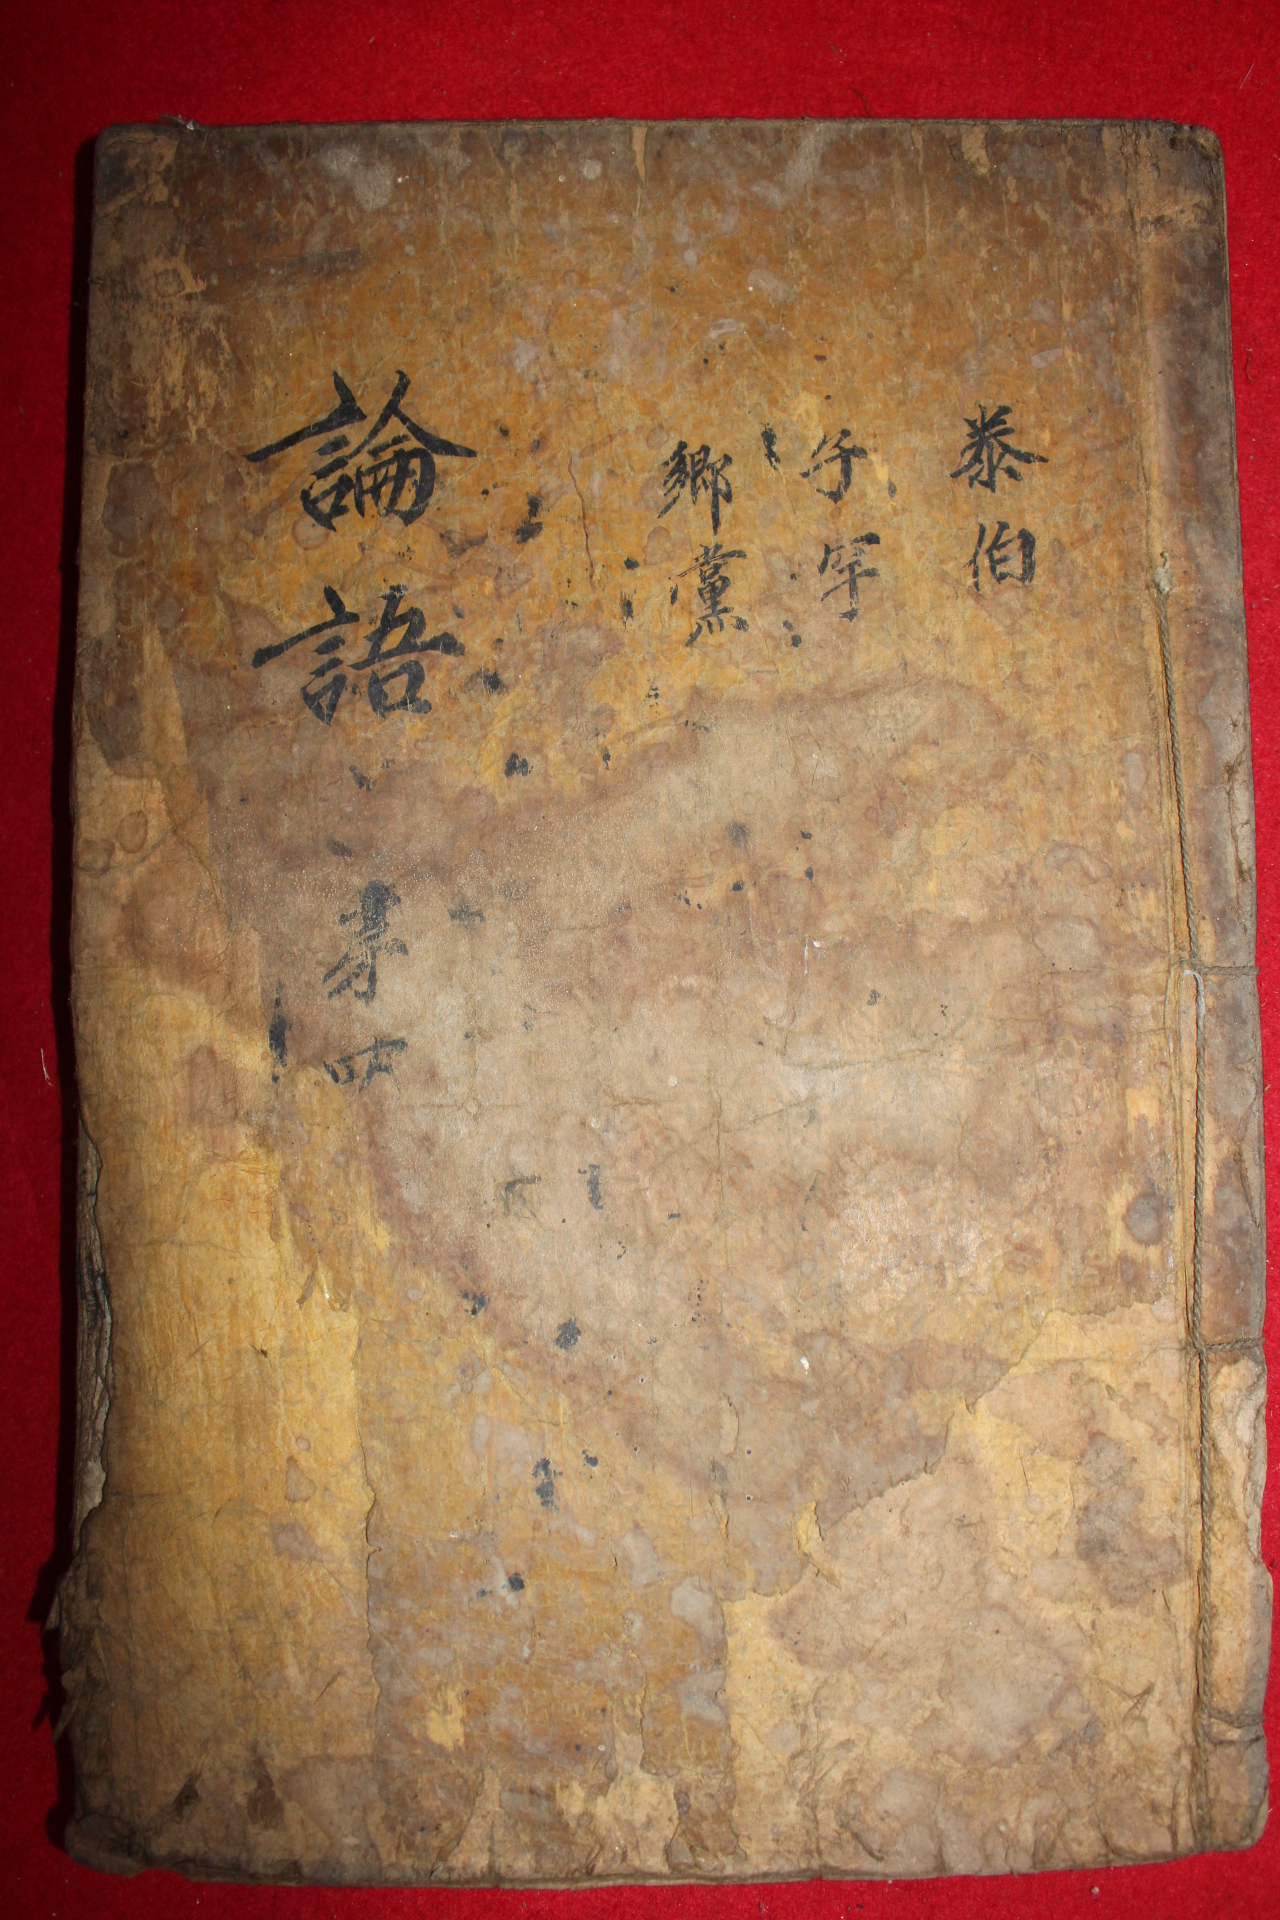 泰伯
子罕
鄉黨
論語
苐四